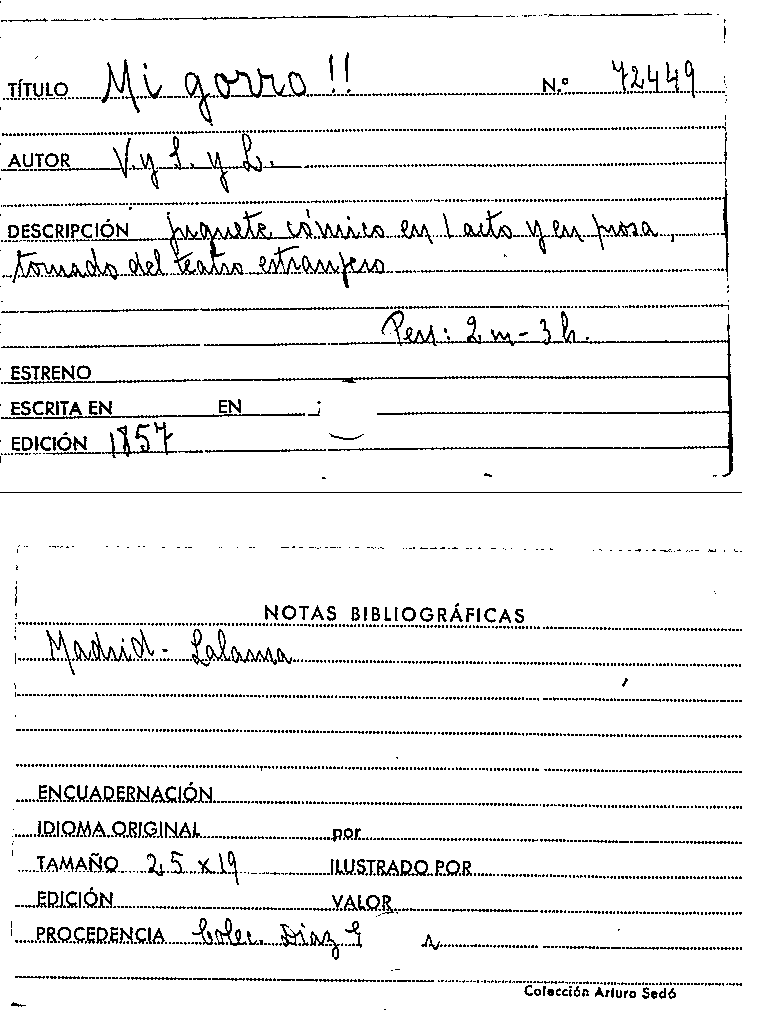 TÍTULO Mi gorro!! N.º 72449
AUTOR V. y S. y L.
DESCRIPCIÓN juguete cómico en 1 acto y en prosa,
tomado del teatro estranjero
Pers: 2 m - 3 h.
ESTRENO
ESCRITA EN EN
EDICIÓN 1857
NOTAS BIBLIOGRÁFICAS
Madrid - Lalama
ENCUADERNACIÓN
IDIOMA ORIGINAL por
TAMAÑO 2,5 x 19 ILUSTRADO POR
EDICIÓN VALOR
PROCEDENCIA Colec. Díaz
Colección Arturo Sedó